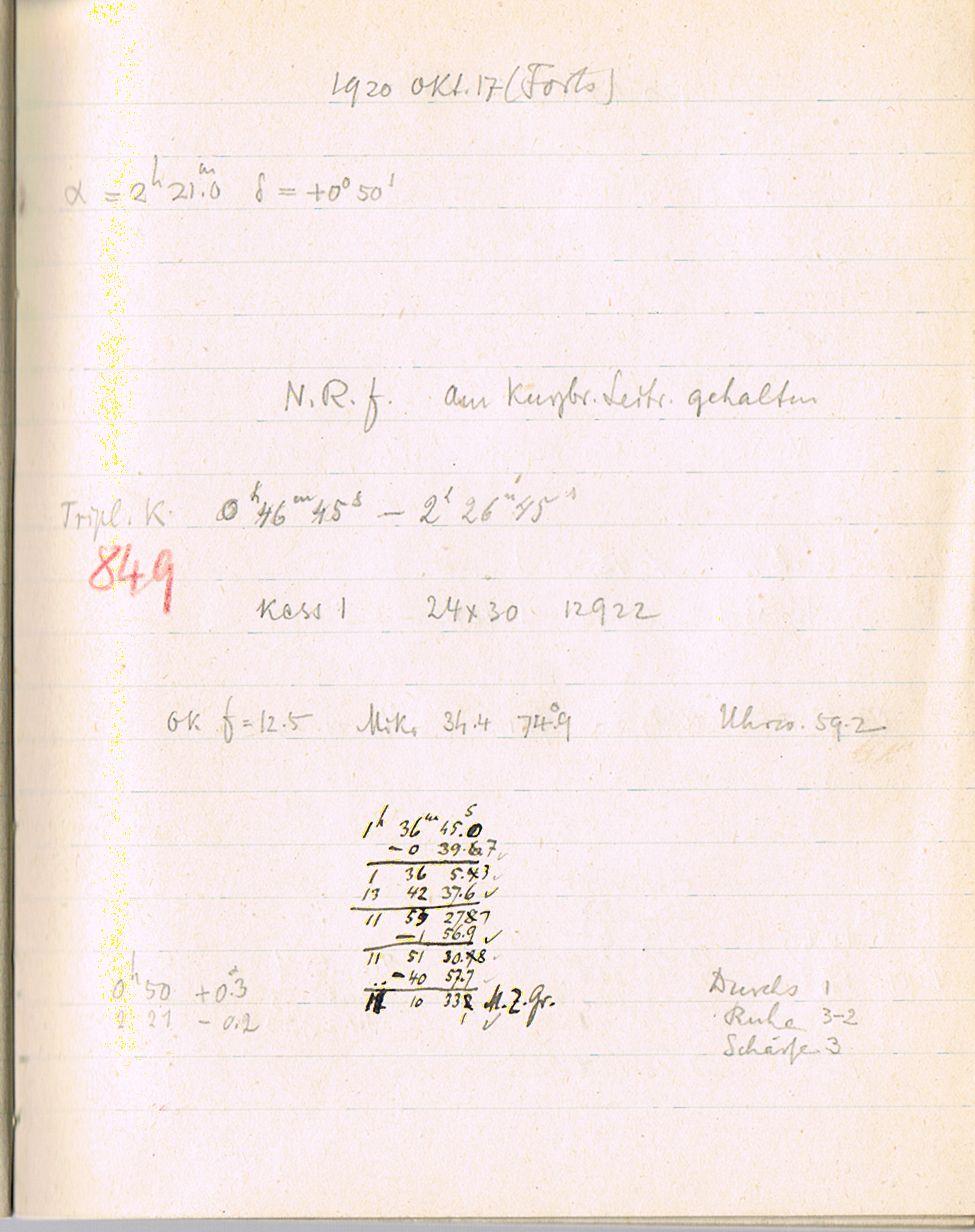 1920 Okt. 17 (Forts)
α = 2ʰ 21ᵐ.0 δ = +0° 50'
N.R.f. am Kurzbr. Leitr. gehalten
Tripl. K. 0ʰ 46ᵐ 45ˢ — 2ʰ 26ᵐ 45ˢ
849
Kass 1 24×30 12922
OK f=12.5 Mik. 34.4 74°.9 Uhrw. 59.2
1ʰ 36ᵐ 45ˢ.0
-0 39.7
1 36 5.3
13 42 37.6 ✓
11 53 27.7
-1 56.9 ✓
11 51 30.8
-40 57.7
11 10 33.1 M.Z.Gr.
0ʰ 50 +0.3
2 21 -0.2
Durchs 1
Ruhe 3-2
Schärfe 3